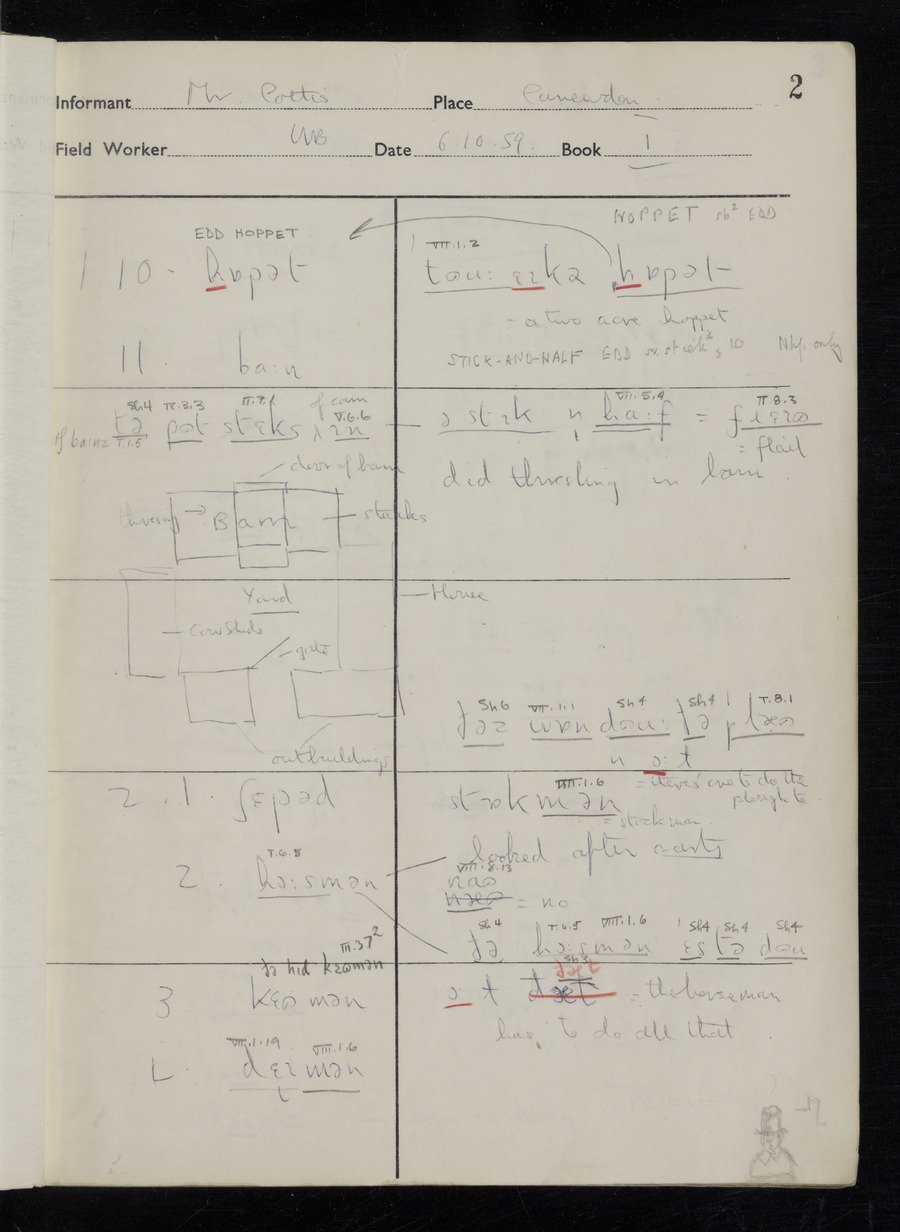 2
Informant Mr. Pottis Place Canewdon
Field Worker WB Date 6.10.59. Book 1
NOPPET sb² EDD
EDD HOPPET
VII.1.2
1 10. hɒpət
tou: ɛɪkə hɒpət
- a two acre hoppet
11. ba:n
STICK-AND-HALF EDD sv. stick² 10 Nhp. only
Sh4 IX.3.3 II.7.1 of corn V.6.6
tə pot stɛks ɪn
of ba:nz I.1.5
VII.5.4 II 8.3
ə stɪk n ha:f = flɛɪəʊ
= flail
did threshing in barn.
door of barn
threshing → Barn — stacks
Yard
House
cowsheds
gate
outbuildings
Sh6 VII.1.1 Sh4 Sh4 I.8.1
ðəz wɒn dou: ðə plæʊ
n ɔ: t
= there's one to do the
plough to
2.1. ʃɛpəd
VIII.1.6
stɒkmən
= stockman.
looked after carts
I.6.5
2. hɔ:smən
VIII.8.13
nəʊ
= no
Sh4 I.6.5 VIII.1.6 Sh4 Sh4 Sh4
ðə hɔ:smən ɛs tə dou
III.37²
ðə hid kɛʊmən
3. kɛʊmən
Sh3
ðæt
ɔ t = the horseman
has to do all that.
VII.1.19 VIII.1.6
4. dɛɪmən